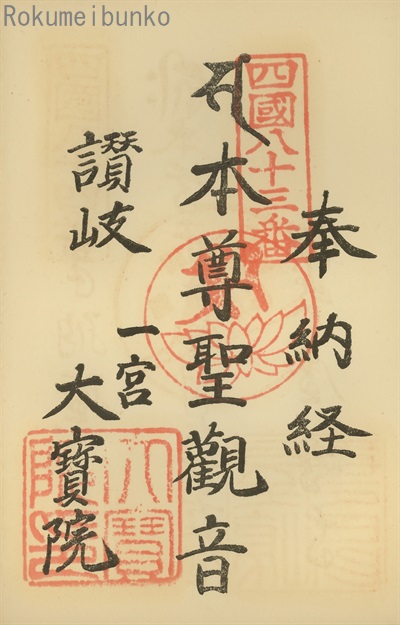 Rokumeibunko
四國八十三番
奉納経
本尊聖觀音
讃岐
一宮
大寳院
大寶院印